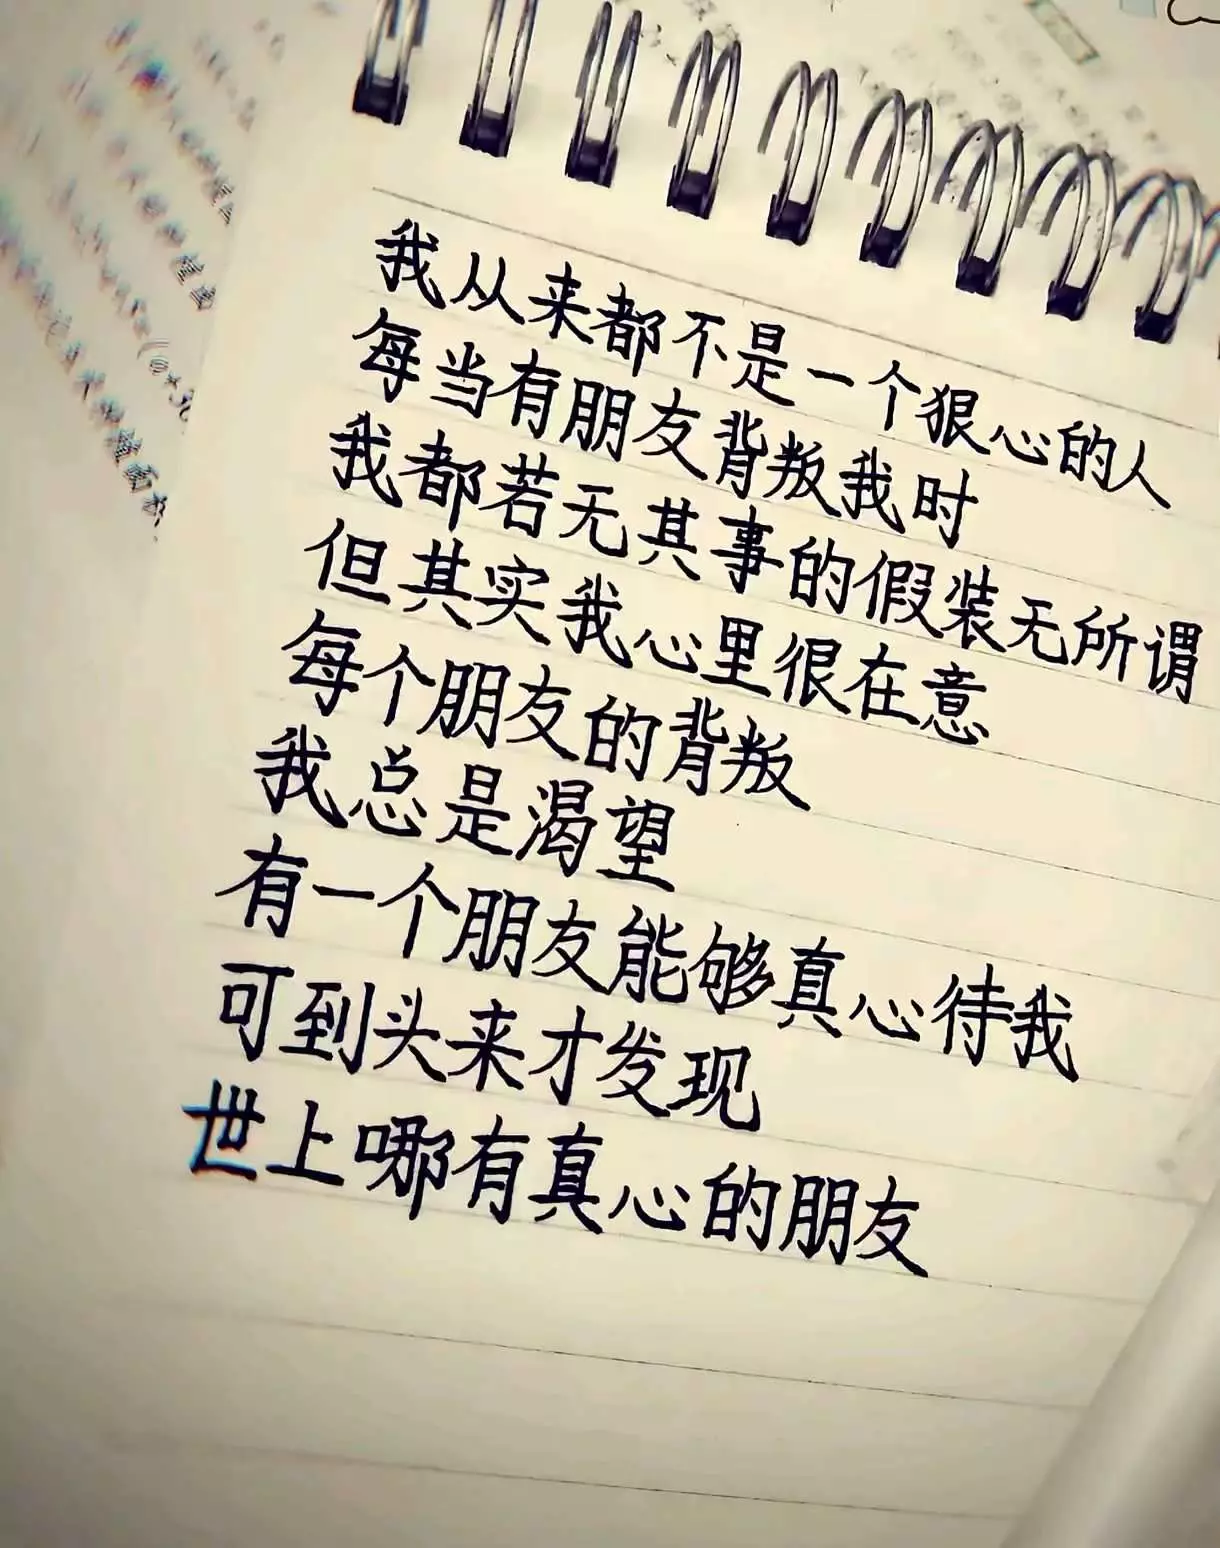 我从来都不是一个狠心的人
每当有朋友背叛我时
我都若无其事的假装无所谓
但其实我心里很在意
每个朋友的背叛
我总是渴望
有一个朋友能够真心待我
可到头来才发现
世上哪有真心的朋友